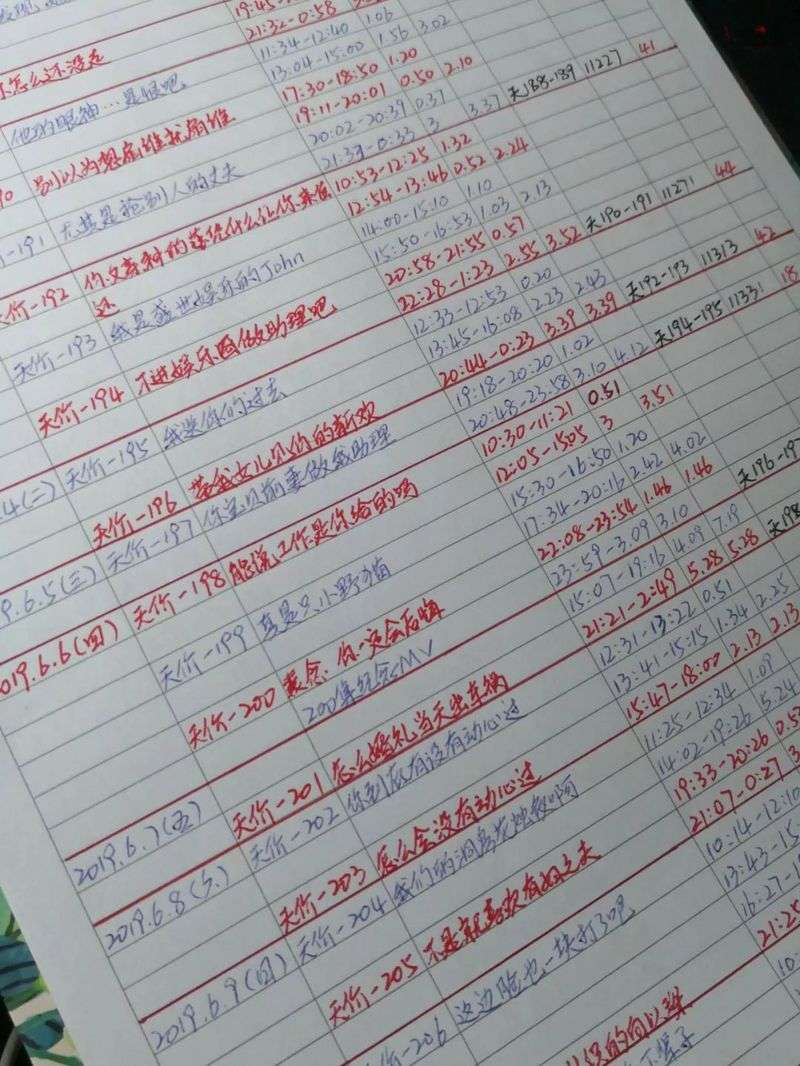 19:45-
21:32-0:58
怎么还没走 11:34-12:40 1.06
13:04-15:00 1.56 3.02
他的眼神…是恨吧 17:30-18:50 1.20
19:11-20:01 0.50 2.10
别以为想崩谁就崩谁 20:02-20:39 0.37
-191 尤其是抢别人的丈夫 21:33-0:33 3 3.37 天188-189 11227 41
天价-192 10:53-12:25 1.32
12:54-13:46 0.52 2.24
天价-193 我是盛世娱乐的John 14:00-15:10 1.10
15:50-16:53 1.03 2.13
天价-194 不进娱乐圈做助理吧 20:58-21:55 0.57
22:28-1:23 2.55 3.52 天190-191 11271 44
天价-195 我要你的过去 12:33-12:53 0.20
13:45-16:08 2.23 2.43
天价-196 带我女儿见你的新欢 20:44-0:23 3.39 3.39 天192-193 11313 42
天价-197 你宝贝前妻做我助理 19:18-20:20 1.02
20:48-23:58 3.10 4.12 天194-195 11331 18
天价-198 能说工作是你给的吗 10:30-11:21 0.51
12:05-1505 3 3.51
天价-199 真是只小野猫 15:30-16:50 1.20
17:34-20:16 2.42 4.02
22:08-23:54 1.46 1.46 天196-19
2019.6.6(四) 23:59-3:09 3.10
天价-200 15:07-19:16 4.09 7.19
200集纪念MV 21:21-2:49 5.28 5.28 天198
2019.6.7(五) 天价-201 怎么婚礼当天出车祸 12:31-13:22 0.51
天价-202 你到底有没有动心过 13:41-15:15 1.34 2.25
2019.6.8(六) 天价-203 怎么会没有动心过 15:47-18:00 2.13 2.13
天价-204 我们的洞房花烛夜啊 11:25-12:34 1.09
14:02-19:26 5.24
2019.6.9(日) 天价-205 不是就喜欢有妇之夫 19:33-20:26 0.5
21:07-0:27 3
天价-206 这边脸也一块打了吧 10:14-12:10
13:43-15
16:27-1
21:25
10: